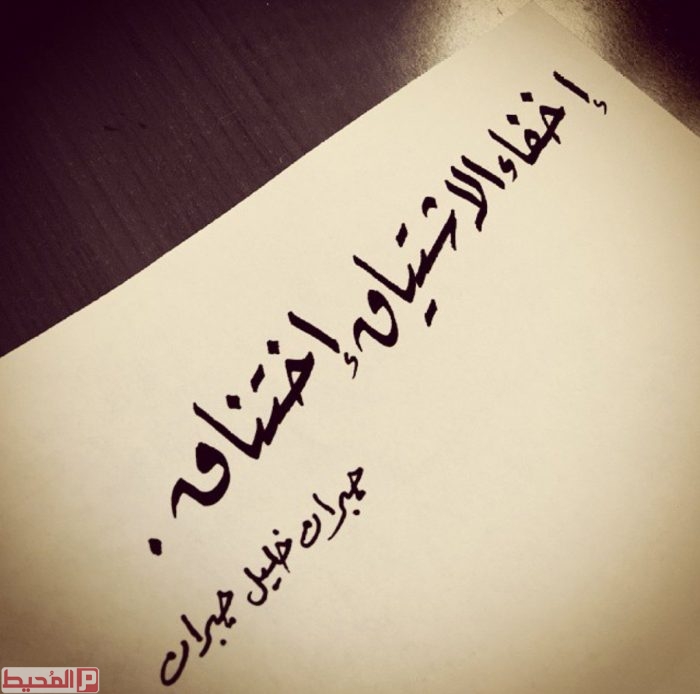 إخفاء الاشتياق إختناق .
جبران خليل جبران
المُحيط